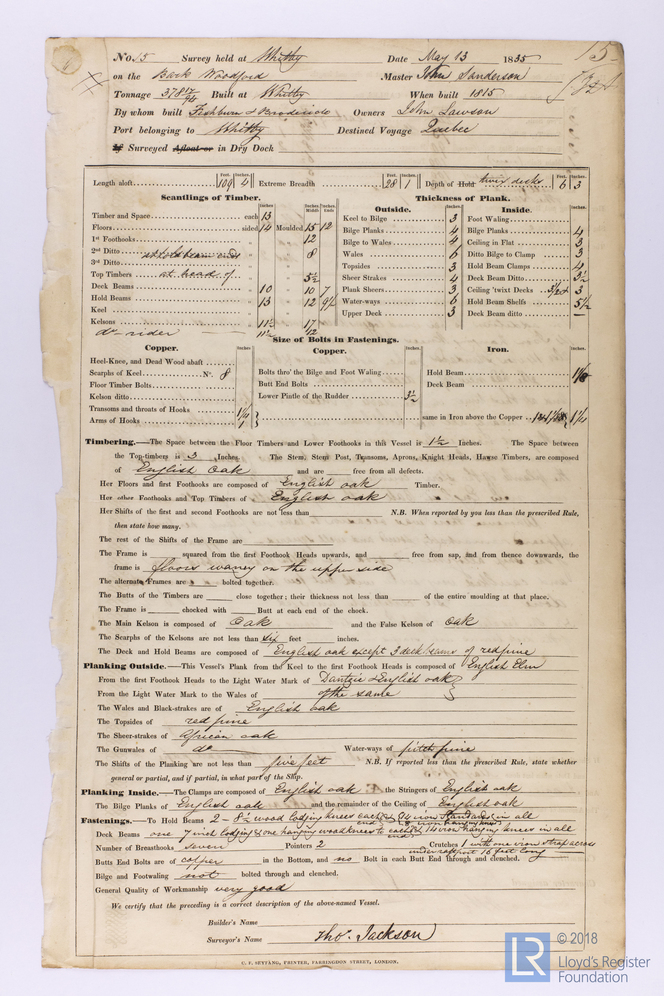 No. 15 Survey held at Whitby Date May 13 1835
15
on the Bark Woodford Master John Sanderson
Tonnage 378 17/94 Built at Whitby When built 1815
By whom built Fishburn & Broderick Owners John Lawson
Port belonging to Whitby Destined Voyage Quebec
If Surveyed Afloat or in Dry Dock
Feet. Inches. Feet. Inches. Feet. Inches.
Length aloft 109 4 Extreme Breadth 28 1 Depth of Hold twix decks 6 3
Scantlings of Timber.
Inches Inches Middl. Inches Ends
Timber and Space each 13
Floors sided 14 Moulded 15 12
1st Foothooks 12
2nd Ditto 8
3rd Ditto
Top Timbers at head of 5½
Deck Beams 10 10 7
Hold Beams 13 12 9½
Keel
Kelsons 11½ 17
do rider 11½ 12
Thickness of Plank.
Outside. Inches.
Keel to Bilge 3
Bilge Planks 4
Bilge to Wales 4
Wales 6
Topsides 3
Sheer Strakes 4
Plank Sheers 3
Water-ways 6
Upper Deck 3
Inside. Inches.
Foot Waling
Bilge Planks 4
Ceiling in Flat 3
Ditto Bilge to Clamp 3
Hold Beam Clamps 4
Deck Beam Ditto 3½
Ceiling 'twixt Decks 3
Hold Beam Shelfs 5½
Deck Beam ditto —
Size of Bolts in Fastenings.
Copper. Inches.
Heel-Knee, and Dead Wood abaft
Scarphs of Keel No. 8
Floor Timber Bolts
Kelson ditto
Transoms and throats of Hooks 1¼
Arms of Hooks 1
Copper. Inches.
Bolts thro' the Bilge and Foot Waling
Butt End Bolts
Lower Pintle of the Rudder 3½
Iron. Inches.
Hold Beam
Deck Beam
same in Iron above the Copper 1¼
Timbering.—The Space between the Floor Timbers and Lower Foothooks in this Vessel is 1½ Inches. The Space between
the Top-timbers is 3 Inches. The Stem, Stern Post, Transoms, Aprons, Knight Heads, Hawse Timbers, are composed
of English Oak and are free from all defects.
Her Floors and first Foothooks are composed of English oak Timber.
Her other Foothooks and Top Timbers of English oak
Her Shifts of the first and second Foothooks are not less than N.B. When reported by you less than the prescribed Rule,
then state how many.
The rest of the Shifts of the Frame are
The Frame is squared from the first Foothook Heads upwards, and free from sap, and from thence downwards, the
frame is floors waney on the upper side
The alternate Frames are bolted together.
The Butts of the Timbers are close together; their thickness not less than of the entire moulding at that place.
The Frame is chocked with Butt at each end of the chock.
The Main Kelson is composed of Oak and the False Kelson of Oak
The Scarphs of the Kelsons are not less than six feet inches.
The Deck and Hold Beams are composed of English oak except 3 deck beams of red pine
Planking Outside.—This Vessel's Plank from the Keel to the first Foothook Heads is composed of English Elm
From the first Foothook Heads to the Light Water Mark of Dantzic & English oak
From the Light Water Mark to the Wales of of the same
The Wales and Black-strakes are of English oak
The Topsides of red pine
The Sheer-strakes of African oak
The Gunwales of do Water-ways of pitch pine
The Shifts of the Planking are not less than five feet N.B. If reported less than the prescribed Rule, state whether
general or partial, and if partial, in what part of the Ship.
Planking Inside.—The Clamps are composed of English oak the Stringers of English oak
The Bilge Planks of English oak and the remainder of the Ceiling of English oak
Fastenings.—To Hold Beams 2 - 8½ wood lodging knees each end & 94 iron Standards in all
& 8 iron hanging knees
Deck Beams one 7 inct lodging & one hanging wood knees to each end & 14 iron hanging knees in all
Number of Breasthooks seven Pointers 2 Crutches 1 with one iron strap across
under support 16 feet long
Butts End Bolts are of copper in the Bottom, and no Bolt in each Butt End through and clenched.
Bilge and Footwaling not bolted through and clenched.
General Quality of Workmanship very good
We certify that the preceding is a correct description of the above-named Vessel.
Builder's Name
Surveyor's Name Thos. Jackson
C. F. SEYFANG, PRINTER, FARRINGDON STREET, LONDON.
LR © 2018
Lloyd's Register
Foundation